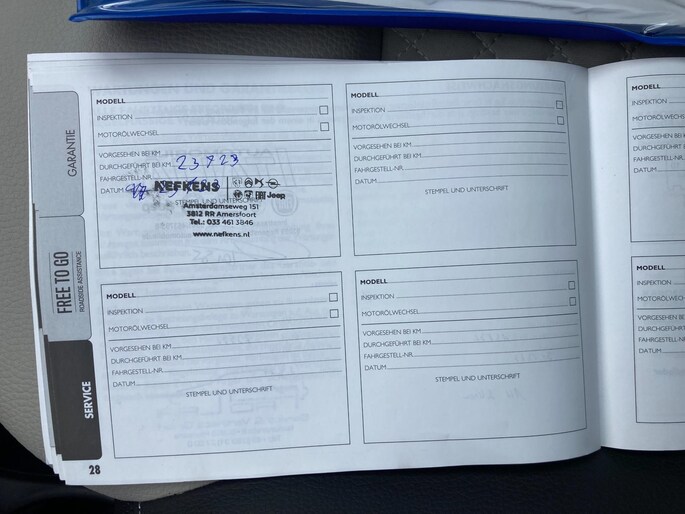 GARANTIE
FREE TO GO
ROADSIDE ASSISTANCE
SERVICE
MODELL
INSPEKTION
MOTORÖLWECHSEL
VORGESEHEN BEI KM
DURCHGEFÜHRT BEI KM
FAHRGESTELL-NR.
DATUM
STEMPEL UND UNTERSCHRIFT
NEFKENS
Jeep
Amsterdamseweg 151
3812 RR Amersfoort
Tel.: 033 461 3846
www.nefkens.nl
MODELL
INSPEKTION
MOTORÖLWECHSEL
VORGESEHEN BEI KM
DURCHGEFÜHRT BEI KM
FAHRGESTELL-NR.
DATUM
STEMPEL UND UNTERSCHRIFT
MODELL
INSPEKTION
MOTORÖLWECHSEL
VORGESEHEN BEI KM
DURCHGEFÜHRT BEI KM
FAHRGESTELL-NR.
DATUM
STEMPEL UND UNTERSCHRIFT
MODELL
INSPEKTION
MOTORÖLWECHSEL
VORGESEHEN BEI KM
DURCHGEFÜHRT BEI KM
FAHRGESTELL-NR.
DATUM
STEMPEL UND UNTERSCHRIFT
28
MODELL
INSPEKTION
VORGESEHEN
FAHRGESTELL
DATUM
MODELL
INSPEKTION
FAHRGESTELL
DATUM